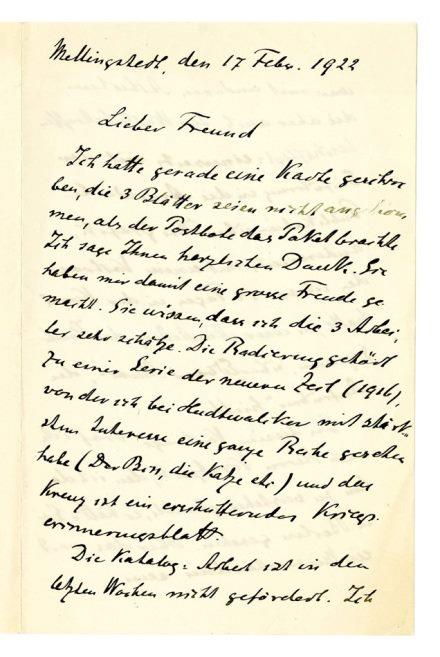 Mellingstedt, den 17 Febr. 1922
Lieber Freund
Ich hatte gerade eine Karte geschrie
ben, die 3 Blätter seien nicht angekom
men, als der Postbote das Paket brachte
Ich sage Ihnen herzlichen Dank. Sie
haben mir damit eine grosse Freude ge
macht. Sie wissen, dass ich die 3 Arbei,
ter sehr schätze. Die Radierung gehört
zu einer Serie der neueren Zeit (1916),
von der ich bei Hudtwalcker mit stärk
stem Interesse eine ganze Reihe gesehen
habe (Der Biss, die Katze etc) und das
Kreuz ist ein erschütterndes Kriegs.
erinnerungsblatt.
Die Katalog-Arbeit ist in den
letzten Wochen nicht gefördert. Ich